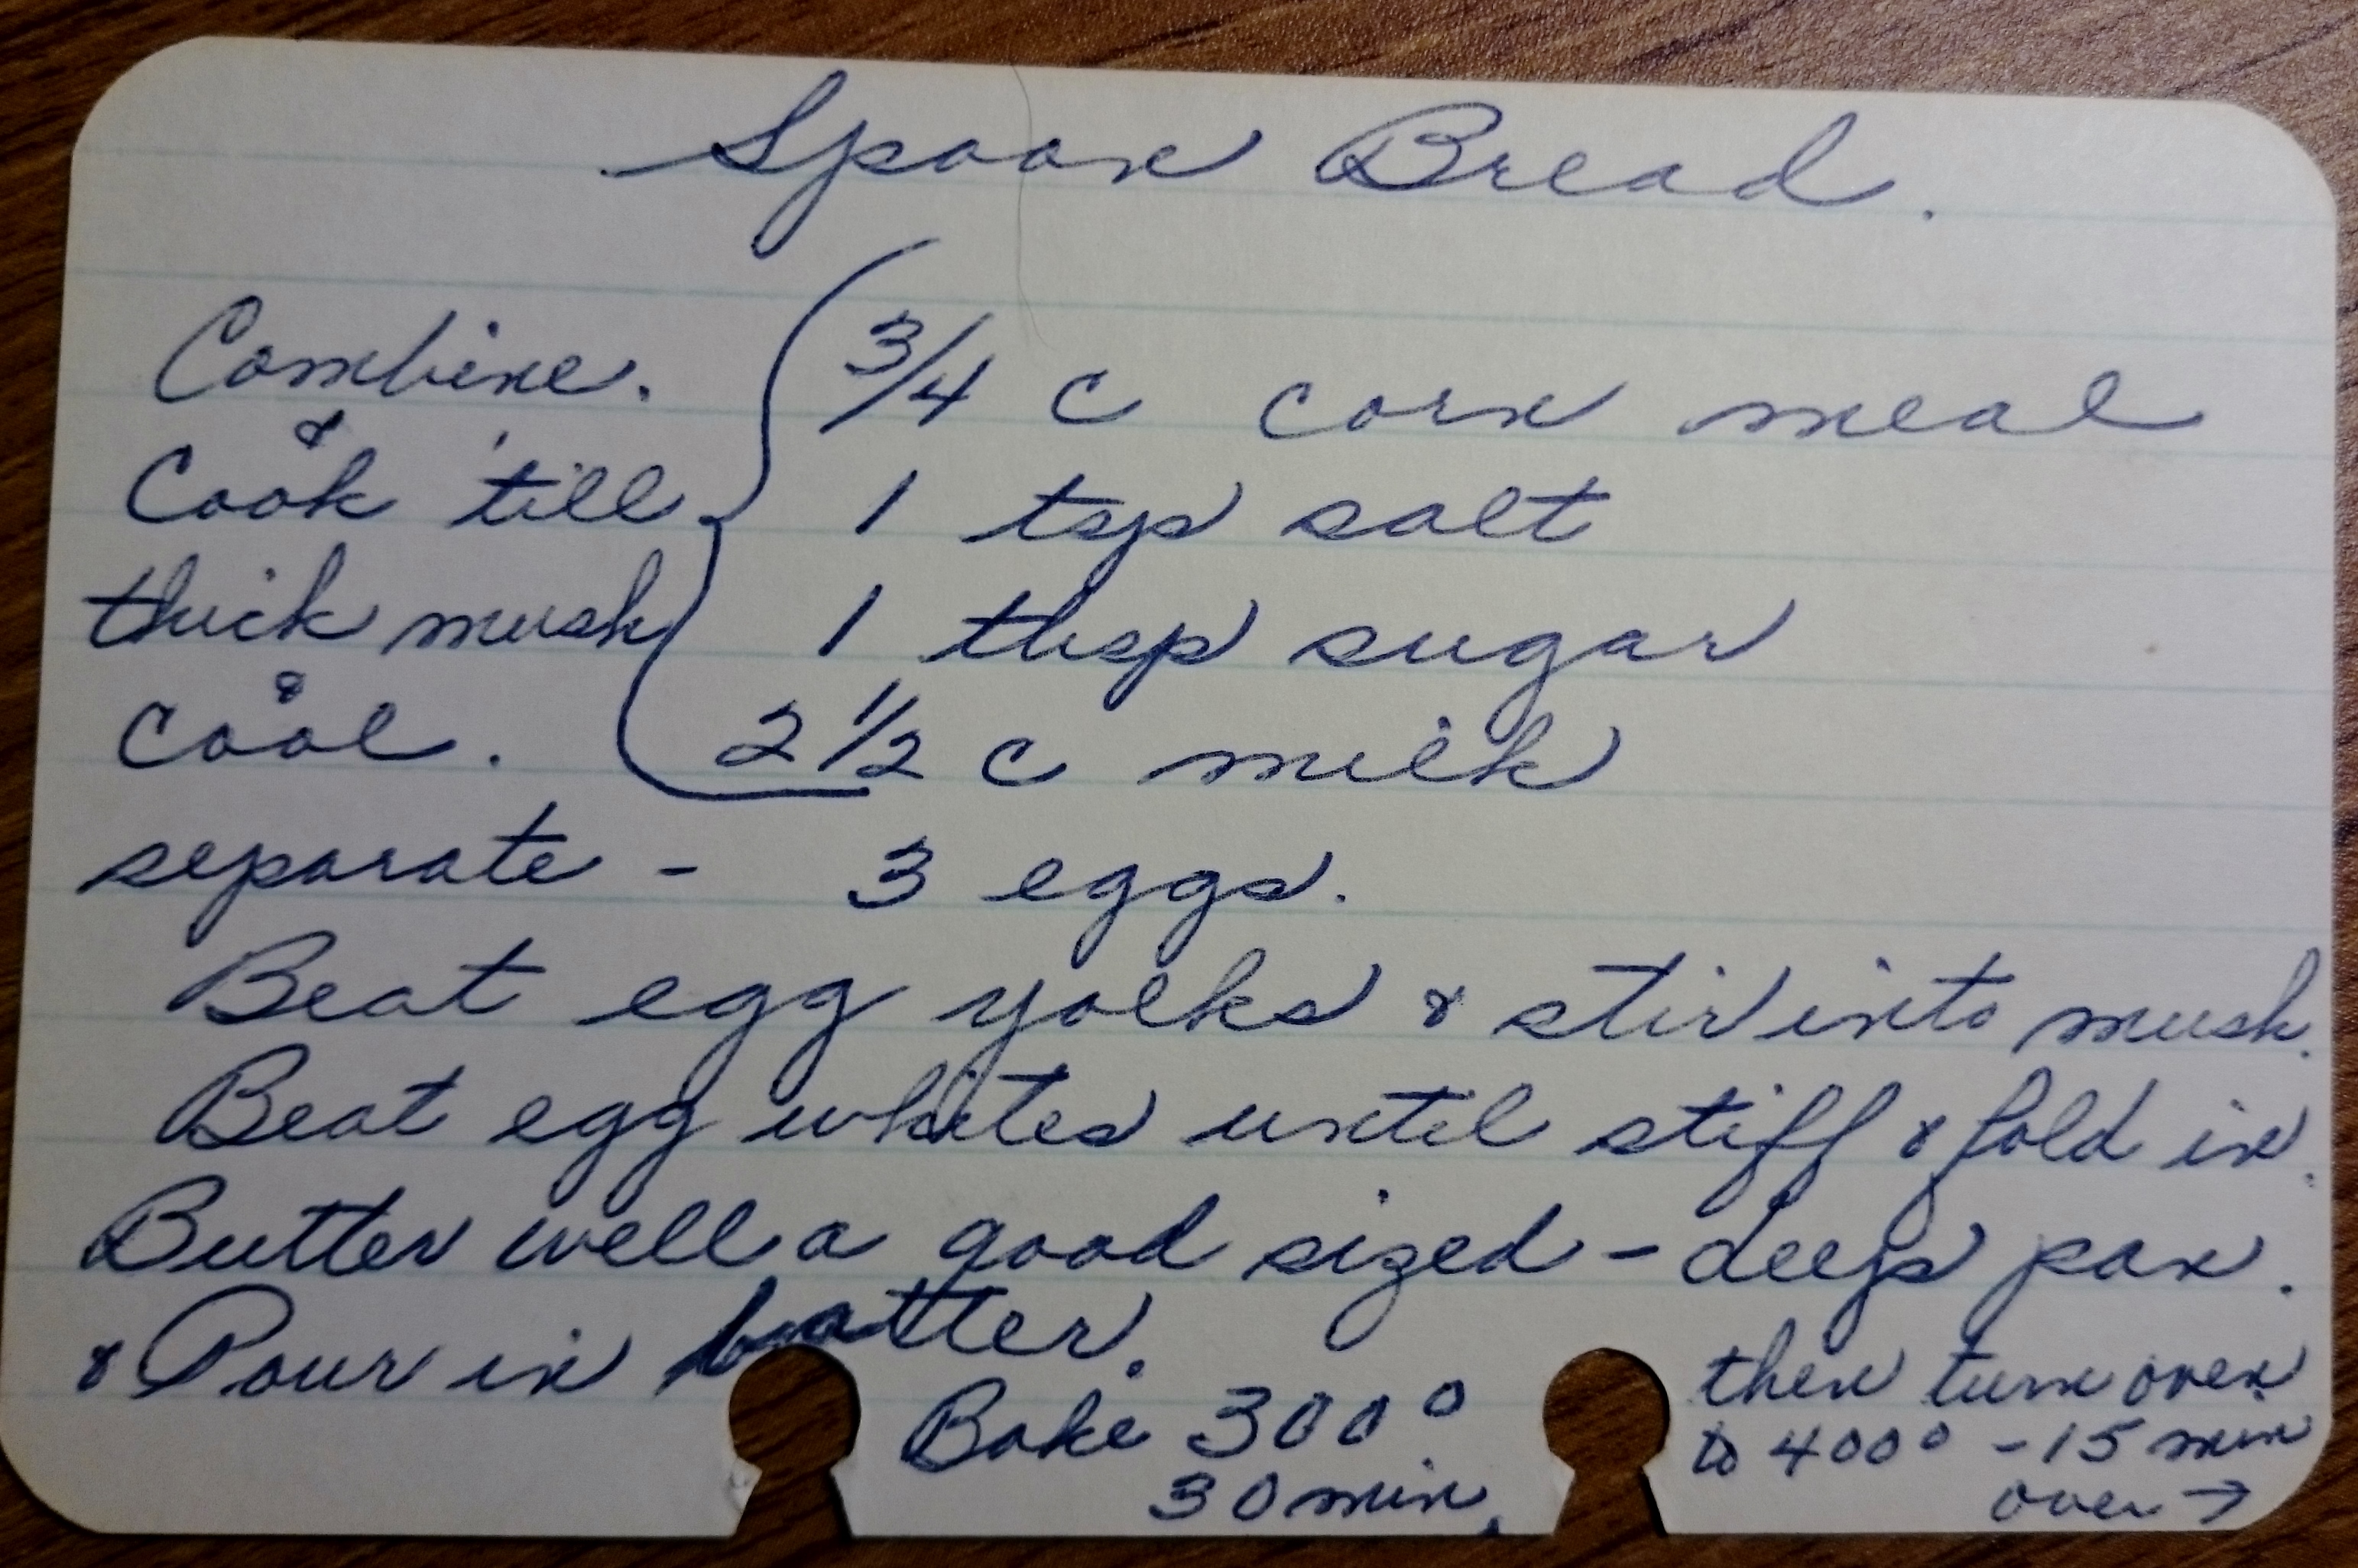 Spoon Bread.
Combine. 3/4 c corn meal
&
Cook till 1 tsp salt
thick mush 1 tbsp sugar
&
cool. 2 1/2 c milk
separate - 3 eggs.
Beat egg yolks & stir into mush.
Beat egg whites until stiff & fold in.
Butter well a good sized - deep pan.
& Pour in batter.
Bake 300°
30 min.
then turn oven
to 400° - 15 min
over →